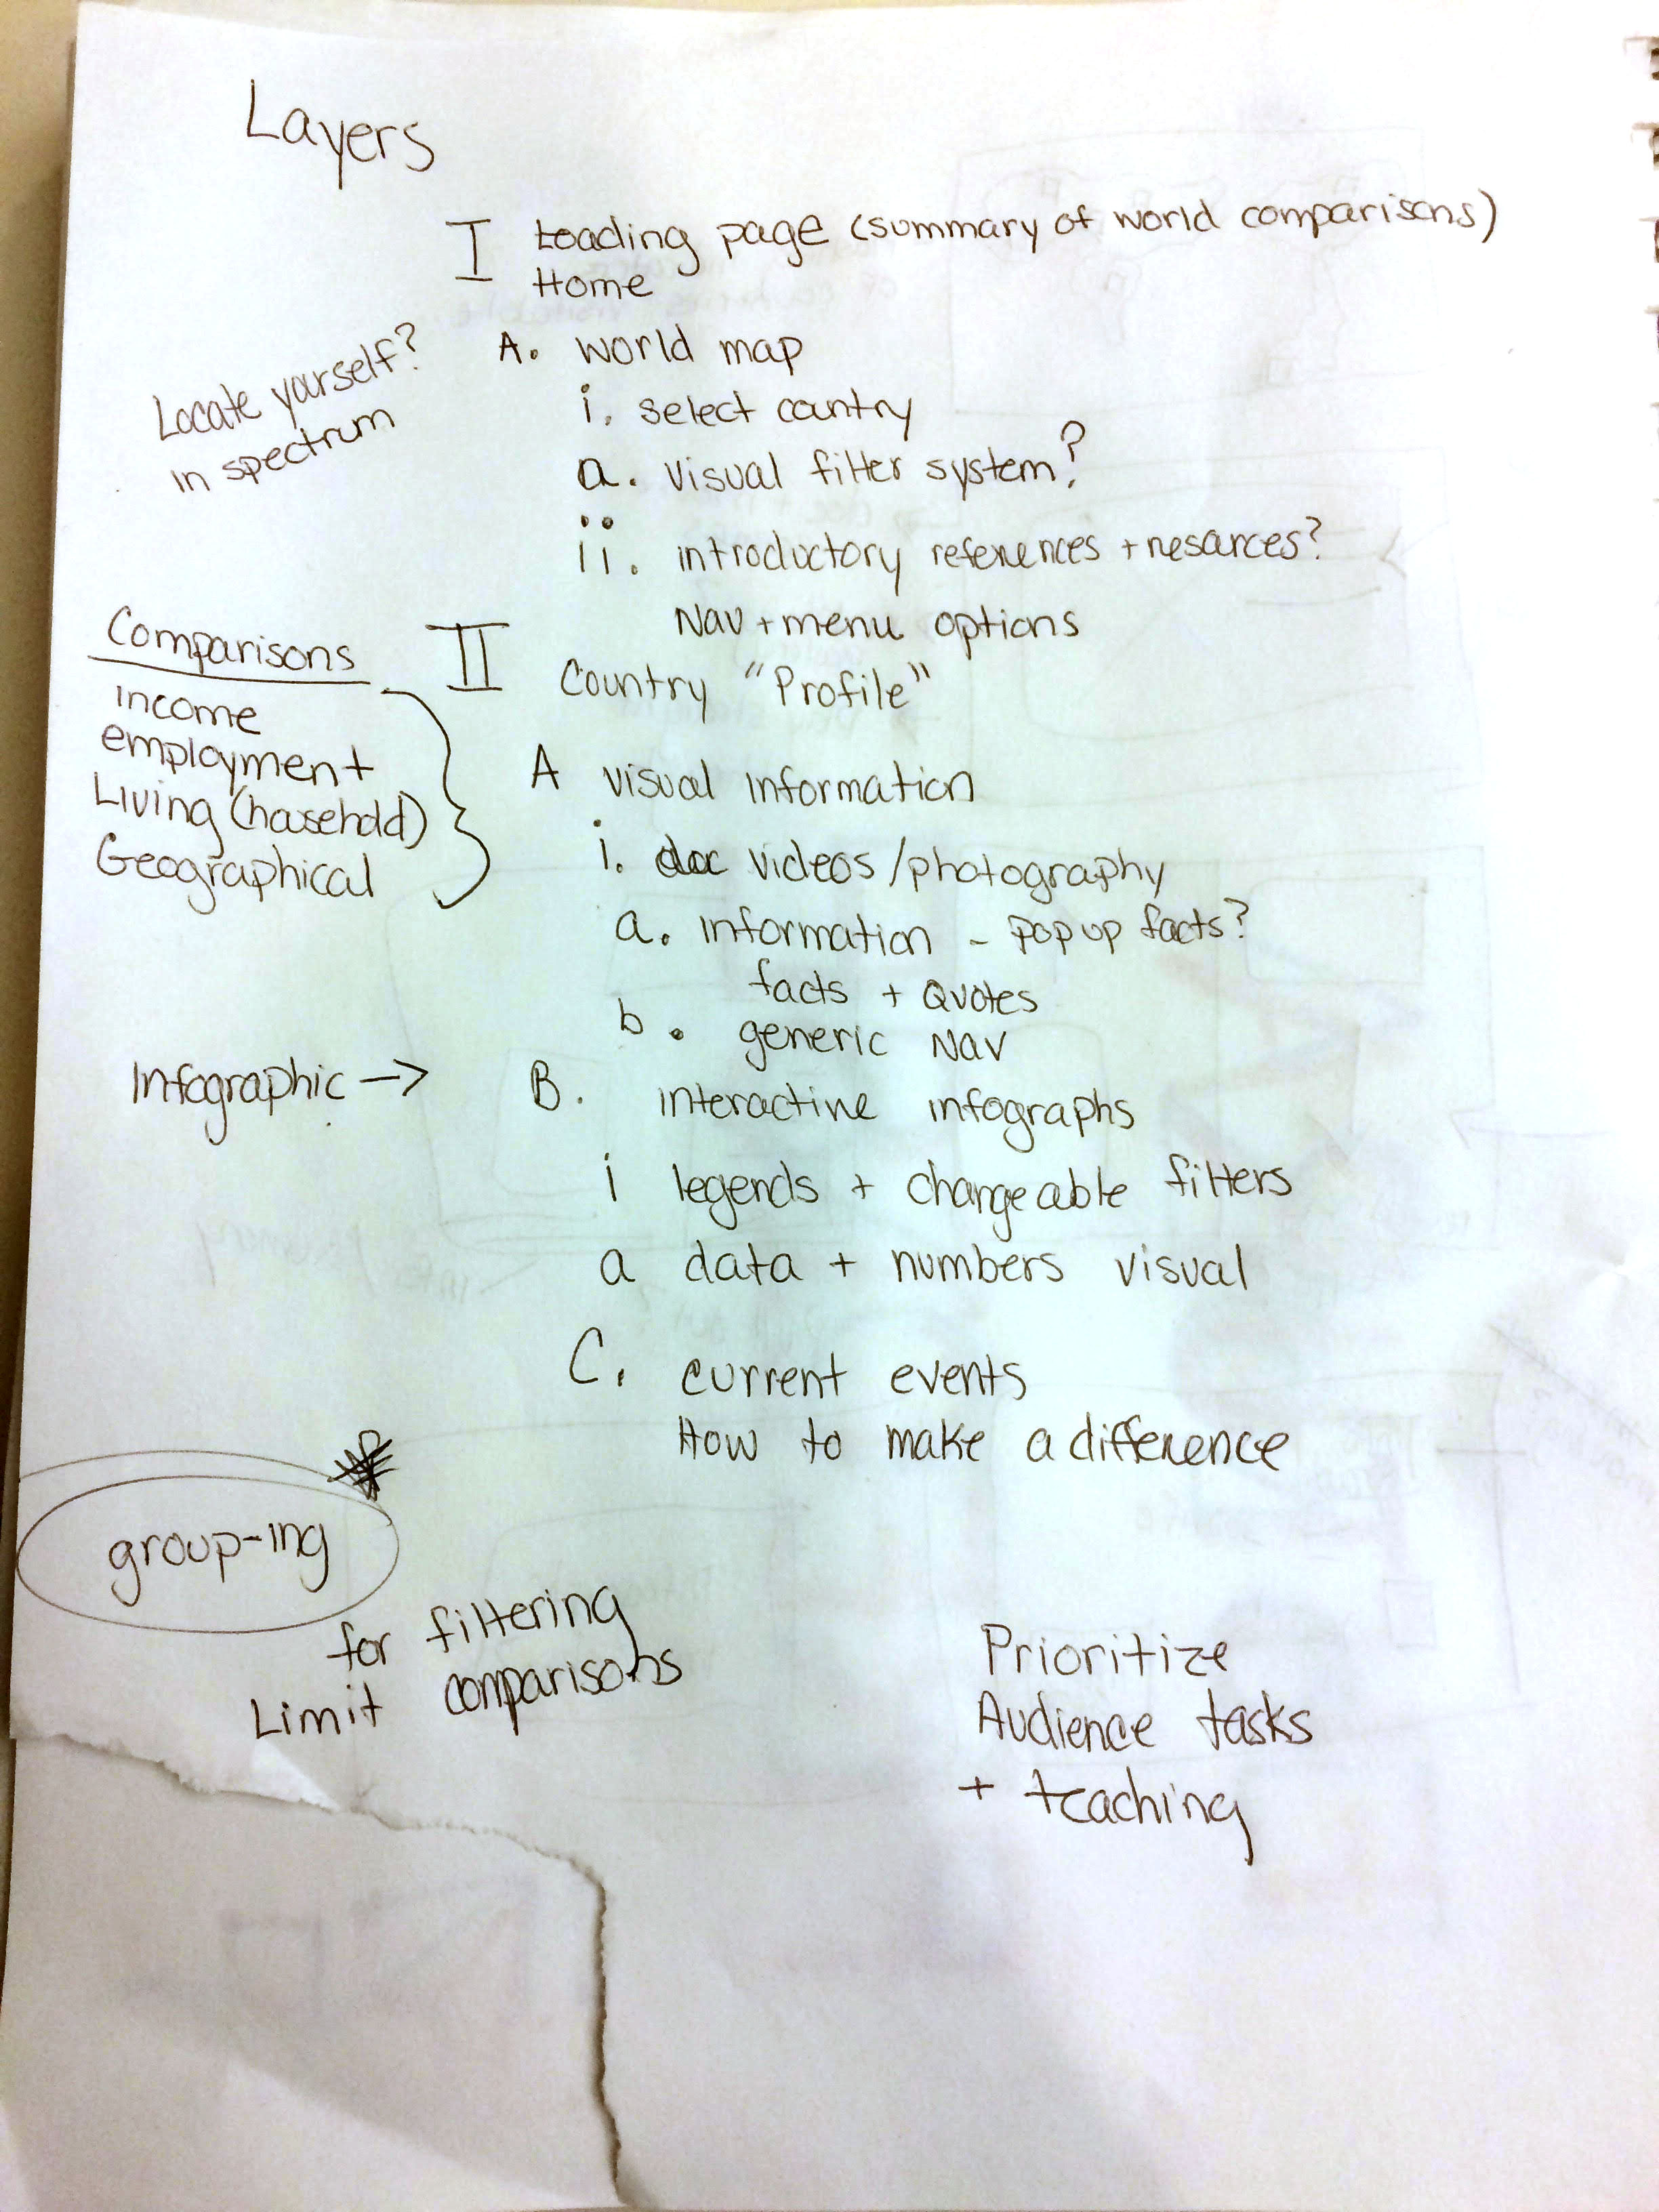 Layers
I Loading page (summary of world comparisons)
Home
Locate yourself?
in spectrum
A. world map
i. select country
a. visual filter system?
ii. introductory references + resources?
Nav + menu options
Comparisons
income
employment
Living (household)
Geographical
II Country "Profile"
A visual information
i. doc videos / photography
a. information - pop up facts?
facts + Quotes
b. generic Nav
Infographic →
B. interactive infographs
i legends + changeable filters
a data + numbers visual
C. current events
How to make a difference
group-ing
for filtering
Limit comparisons
Prioritize
Audience tasks
+ teaching